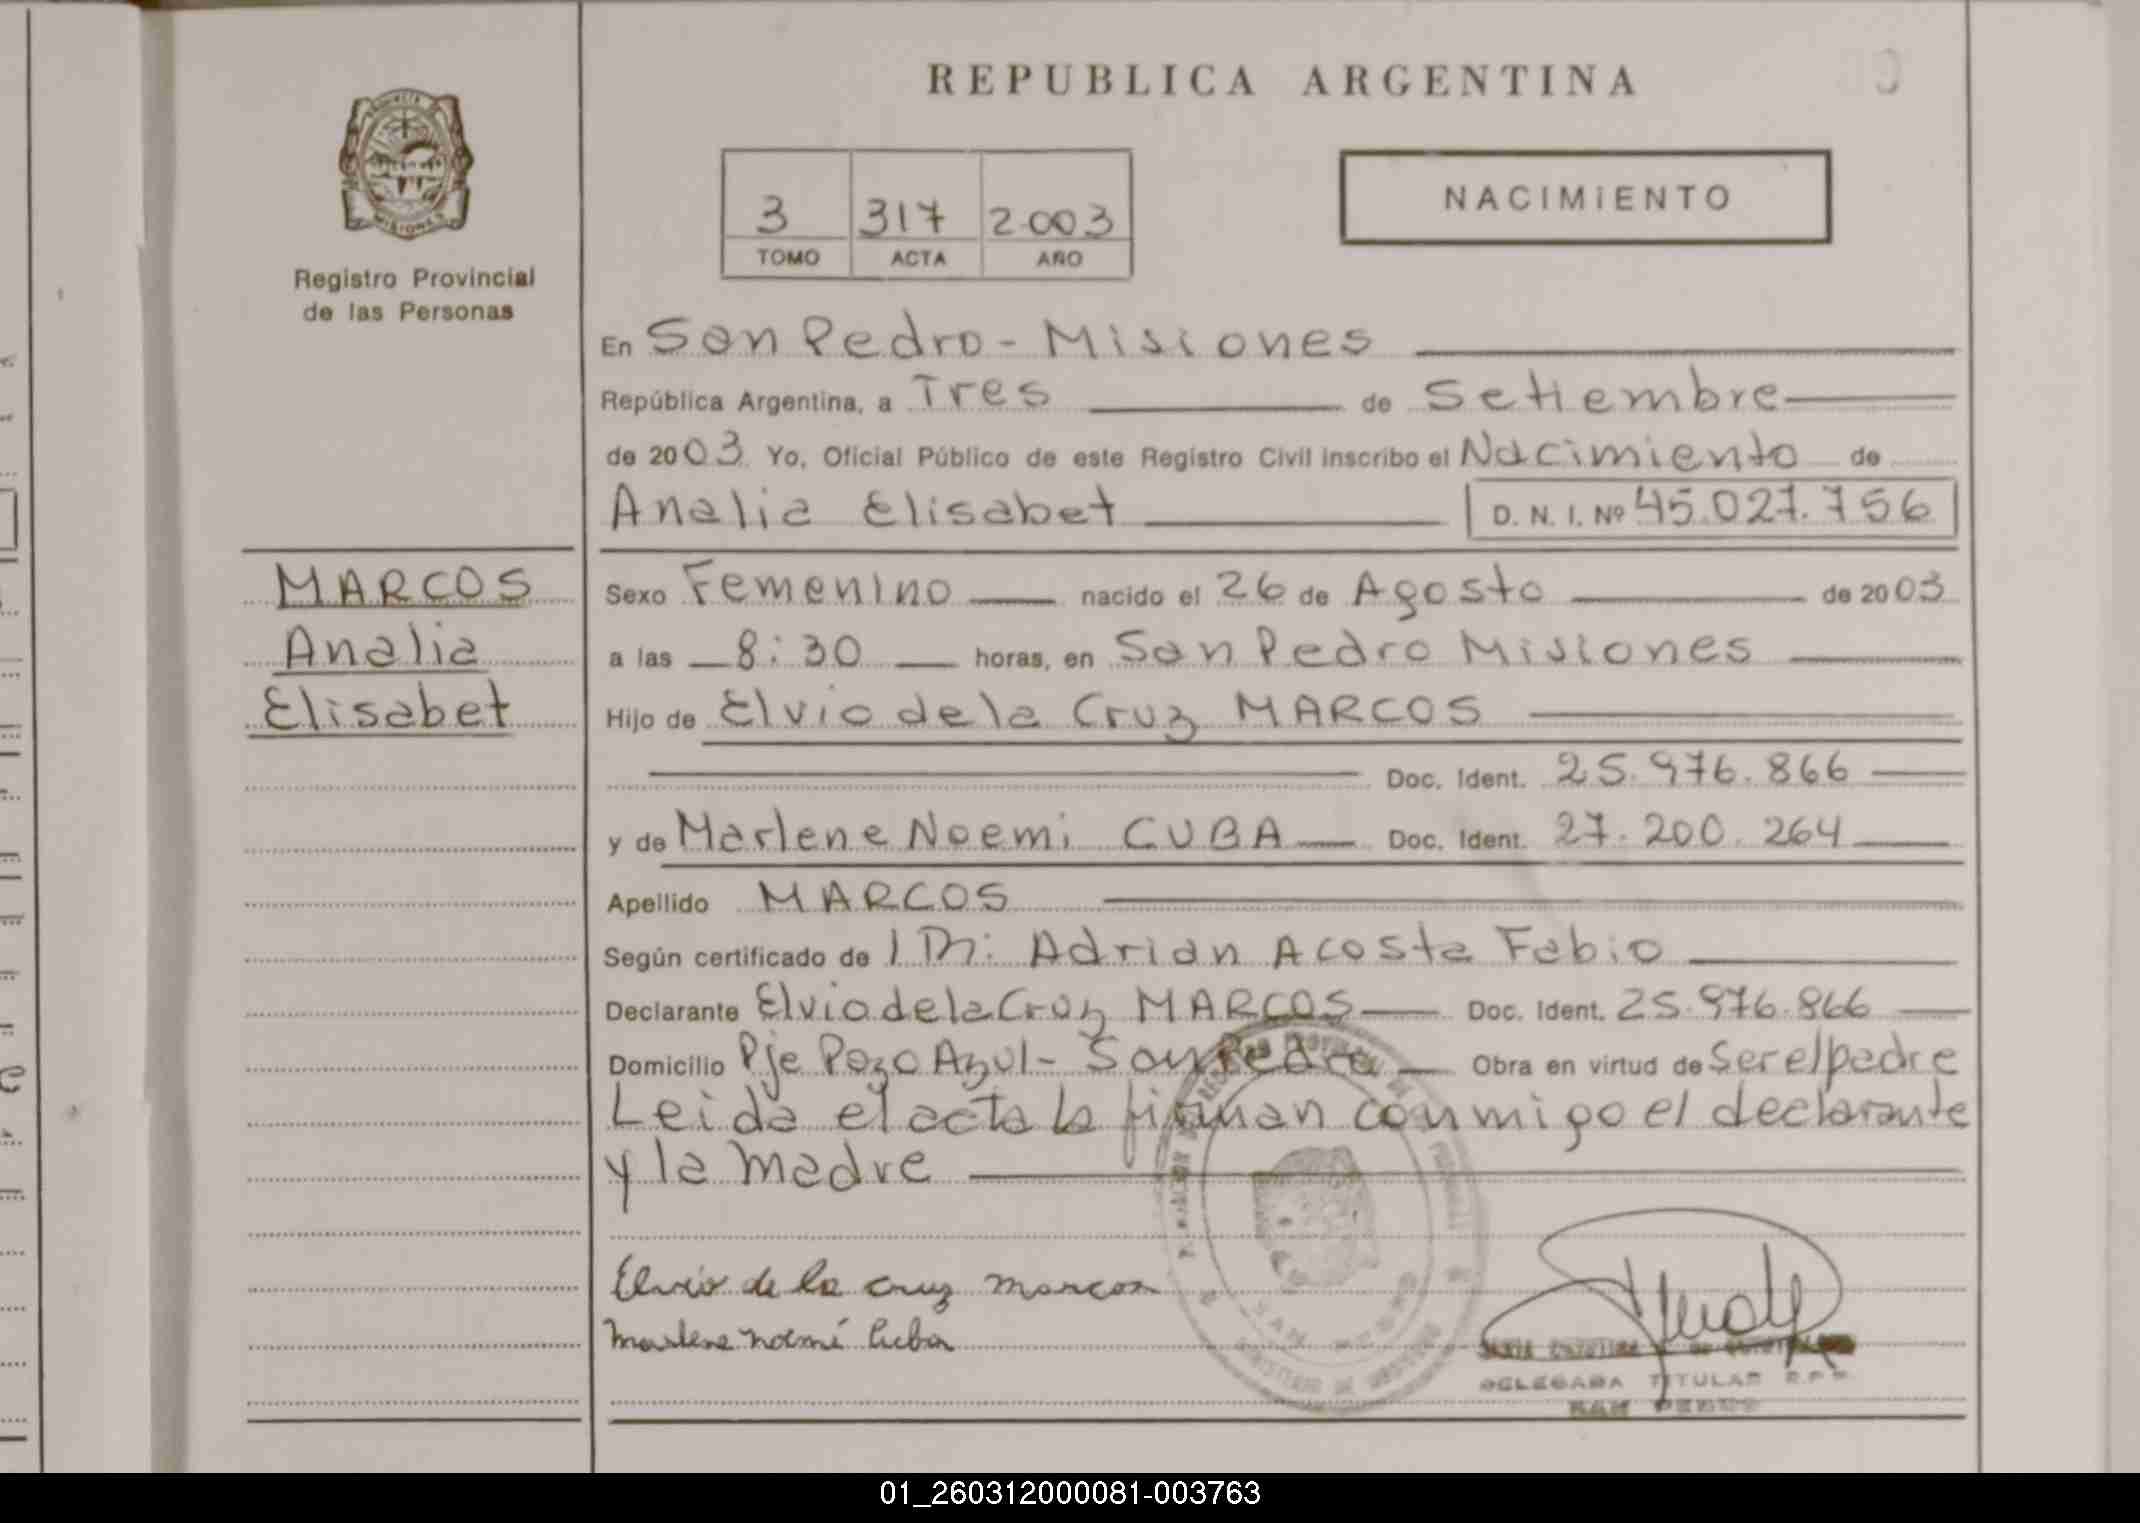 REPUBLICA ARGENTINA
PROVINCIA
MISIONES
Registro Provincial
de las Personas
3 317 2003
TOMO ACTA AÑO
NACIMIENTO
En San Pedro - Misiones
República Argentina, a Tres de Setiembre
de 2003 Yo, Oficial Público de este Registro Civil inscribo el Nacimiento de
Analia Elisabet D. N. I. Nº 45.027.756
MARCOS
Analia
Elisabet
Sexo Femenino nacido el 26 de Agosto de 2003
a las 8:30 horas, en San Pedro Misiones
Hijo de Elvio de la Cruz MARCOS
Doc. Ident. 25.976.866
y de Marlene Noemi CUBA Doc. Ident. 27.200.264
Apellido MARCOS
Según certificado de Adrian Acosta Fabio
Declarante Elvio de la Cruz MARCOS Doc. Ident. 25.976.866
Domicilio Pje Pozo Azul - San Pedro Obra en virtud de Ser el padre
Leida el acta la firman conmigo el declarante
y la madre
Elvio de la cruz marcos
Marlene noemí Cuba
DELEGADA TITULAR R.P.P.
SAN PEDRO
01_260312000081-003763